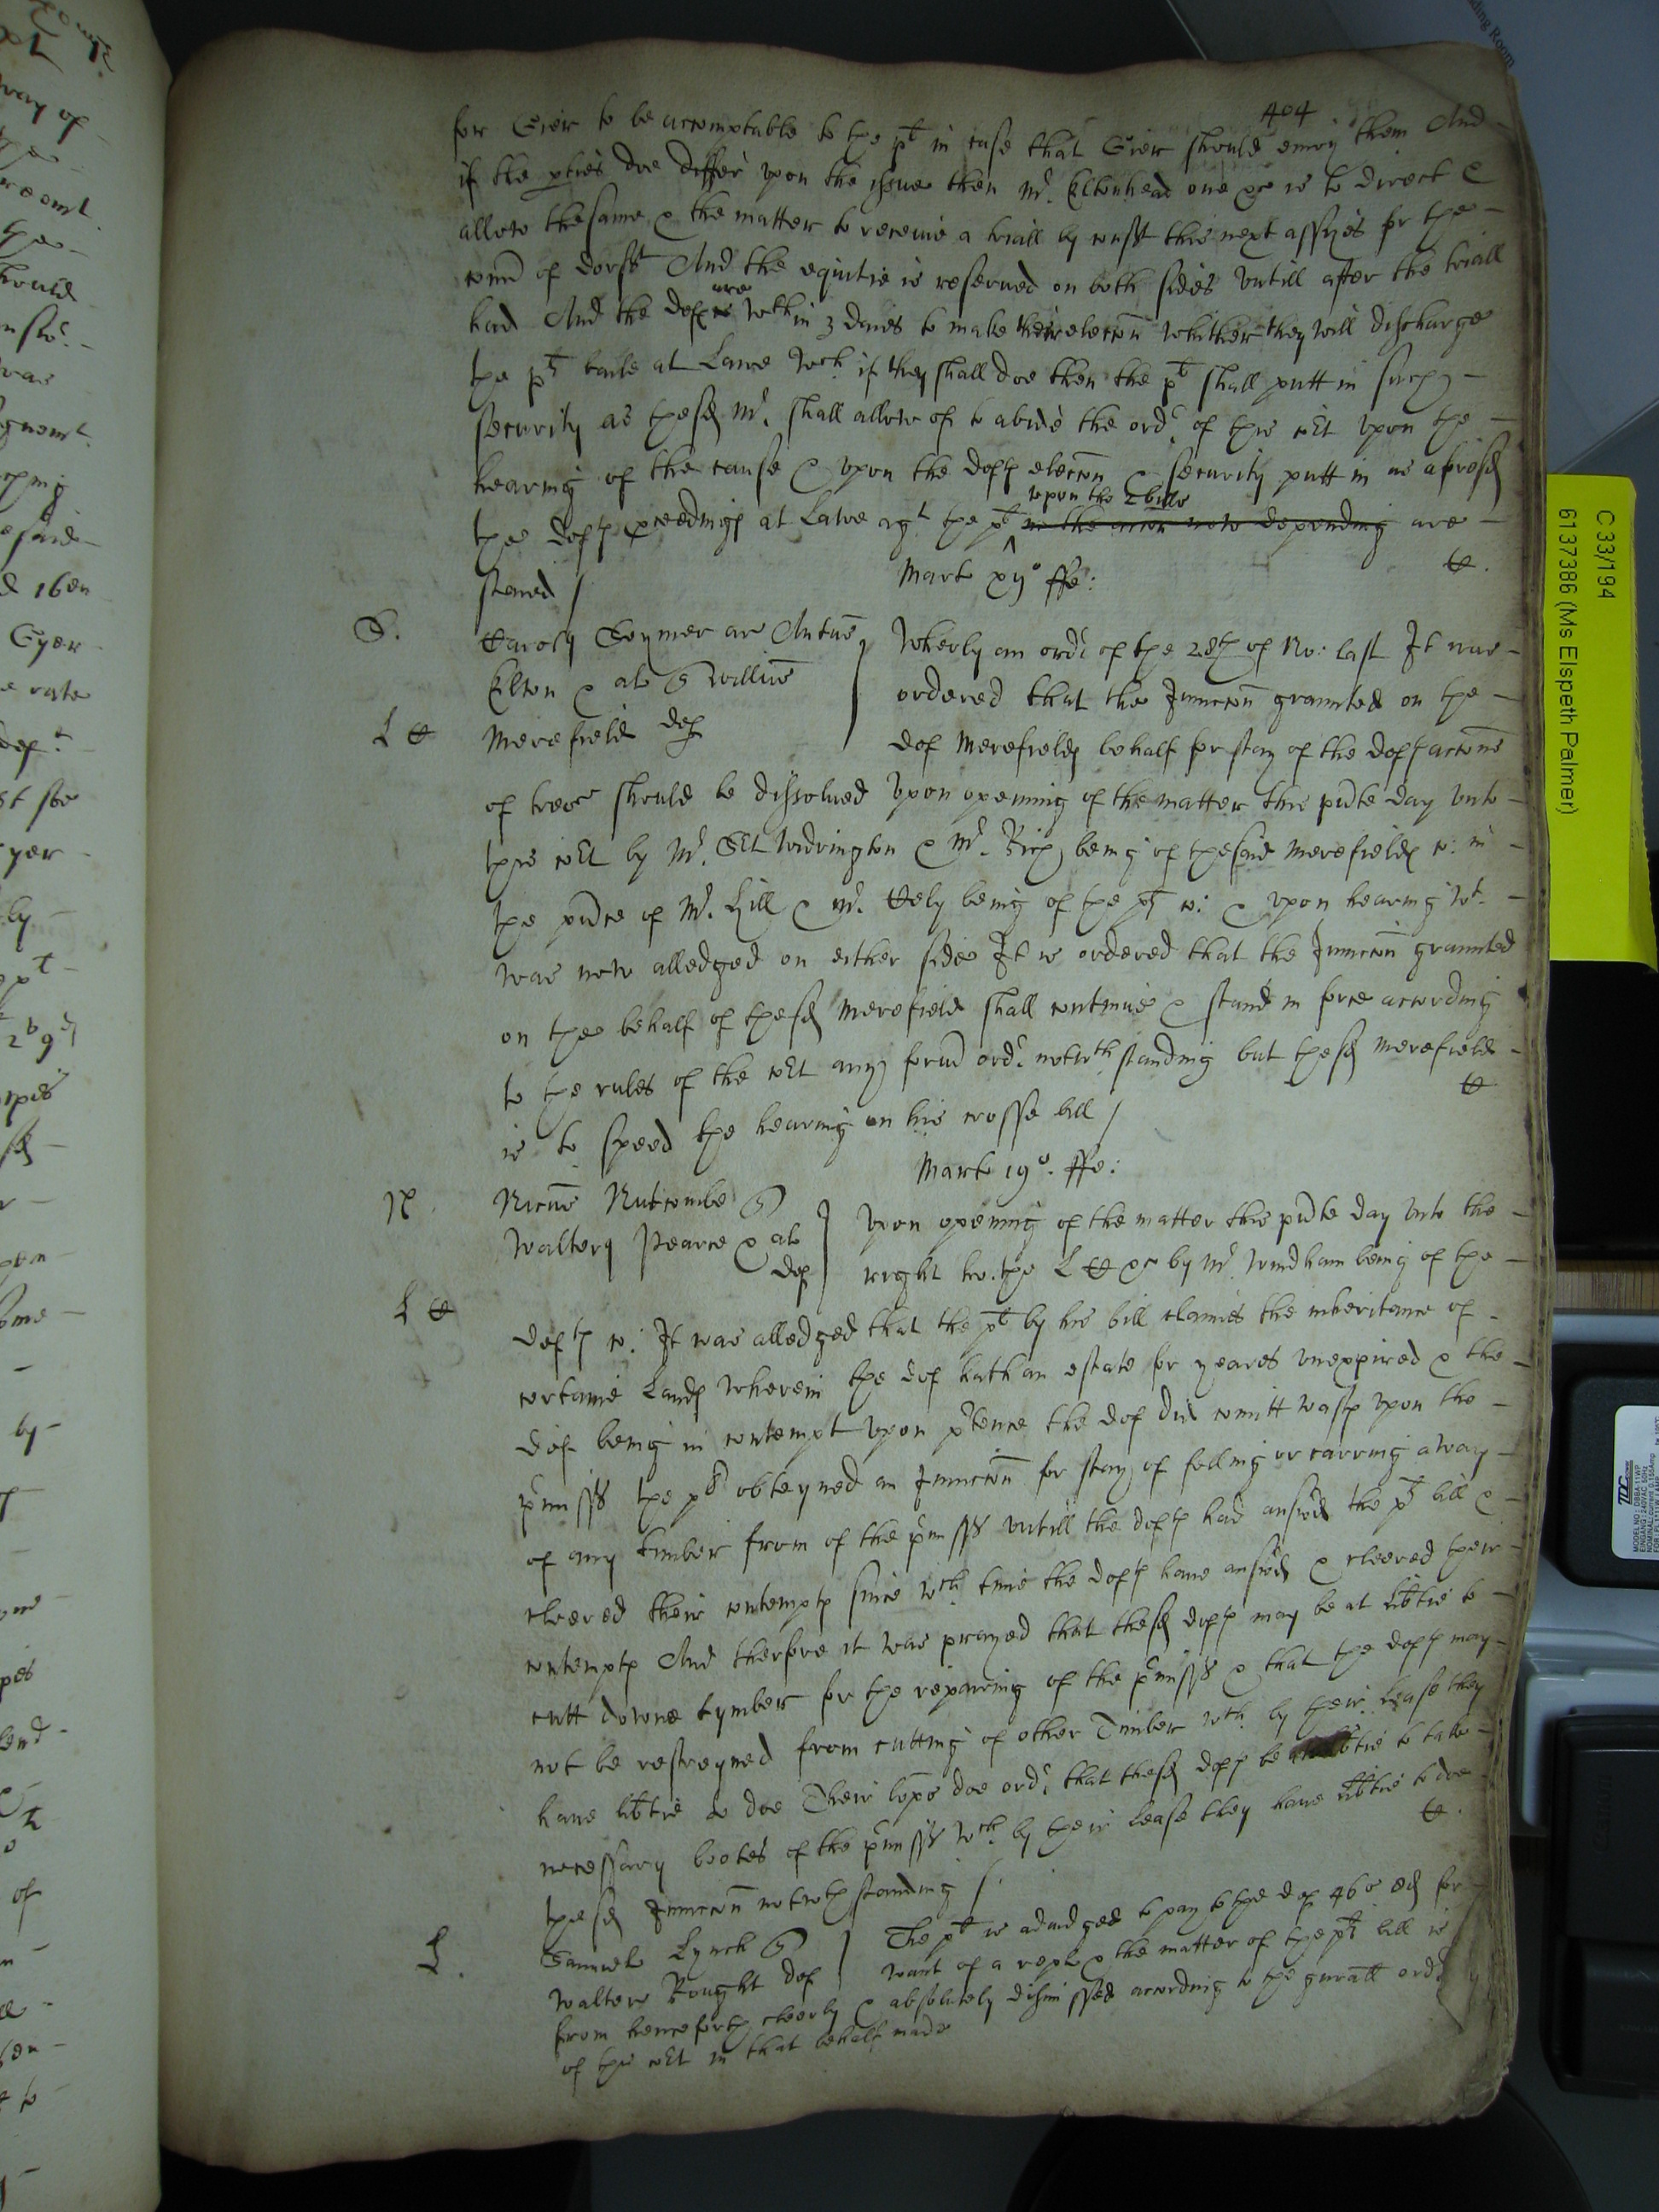 404
for Gier to be accomptable to the plt in case that Gier should enioy them And
if the pties doe differ vpon the issue then Mr. Eltonhead one &c is to direct &
allow the same & the matter to receiue a triall by consent this next assizes for the
com of Dorset And the equitie is reserued on both sides vntill after the triall
had And the deftes are wthin 3 daies to make their eleccon whither they will discharge
the plts baile at Lawe wch if they shall doe then the plt shall putt in such
security as the sd Mr. shall allow of to abide the ordr of this cort vpon the
hearing of the cause & vpon the deftes eleccon & security putt in as aforesd
upon the 2 bills
the deftes pceedings at Lawe agt the plt in the accon now depending are
stayed /
Mart xijo ffr:
S.
Carolus Seymer ar Antus
Elton & al qr Willus
Merefield def
L C
Wherby an ordr of the 28th of No: last It was
ordered that the Iniuccon graunted on the
def Merefields behalf for stay of the deftes accons
of trovr should be dissolued Vpon opening of the matter this pnte day vnto
this cort by Mr. Srt Widrington & Mr. Rich being of the said Merefields co: in
the pnce of Mr. Hill & Mr. Hely being of the plts co: & vpon hearing wt
was now alledged on either side It is ordered that the Iniuccon graunted
on the behalf of the sd Merefield shall continue & stand in force according
to the rules of the cort any form ordr notwthstanding but the sd Merefield
is to speed the hearing on his crosse bill /
Marto 19o. ffr:
N.
Nicus Nutcombe qr
Walterus Pearce & al
def
L C
Vpon opening of the matter this pnte day vnto the
right ho: the L C &c by Mr Windham being of the
deftes co: It was alledged that the plt by his bill claimes the inheritance of
certaine Lands wherein the def hath an estate for yeares vnexpired & the
def being in contempt vpon ptence the def did comitt wast vpon the
pmisses the plt obteyned an Iniuccon for stay of felling or carring away
of any timber from of the pmisses vntill the deftes had answd the plts bill &
cleered their contempts since wch time the deftes haue answd & cleered their
contempts And therfore it was prayed that the sd deftes may be at libtie to
cutt downe tymber for the repairing of the pmisses & that the deftes may
not be restreyned from cutting of other Timber wch by their lease they
haue libtie to doe Their lopps doe ordr that the sd deftes be at libtie to take
necessary bootes of the pmisses wch by their lease they haue libtie to doe
the sd Iniuccon notwthstanding /
L.
Samuel Lynch qr
Walter Bought def
The plt is adiudged to pay to the def 46s 8d for
want of a replc & the matter of the plts bill is
from henceforth cleerly & absolutely dismissed according to the gnrall ordr
of this cort in that behalf made
C 33/194
6137386 (Ms Elspeth Palmer)